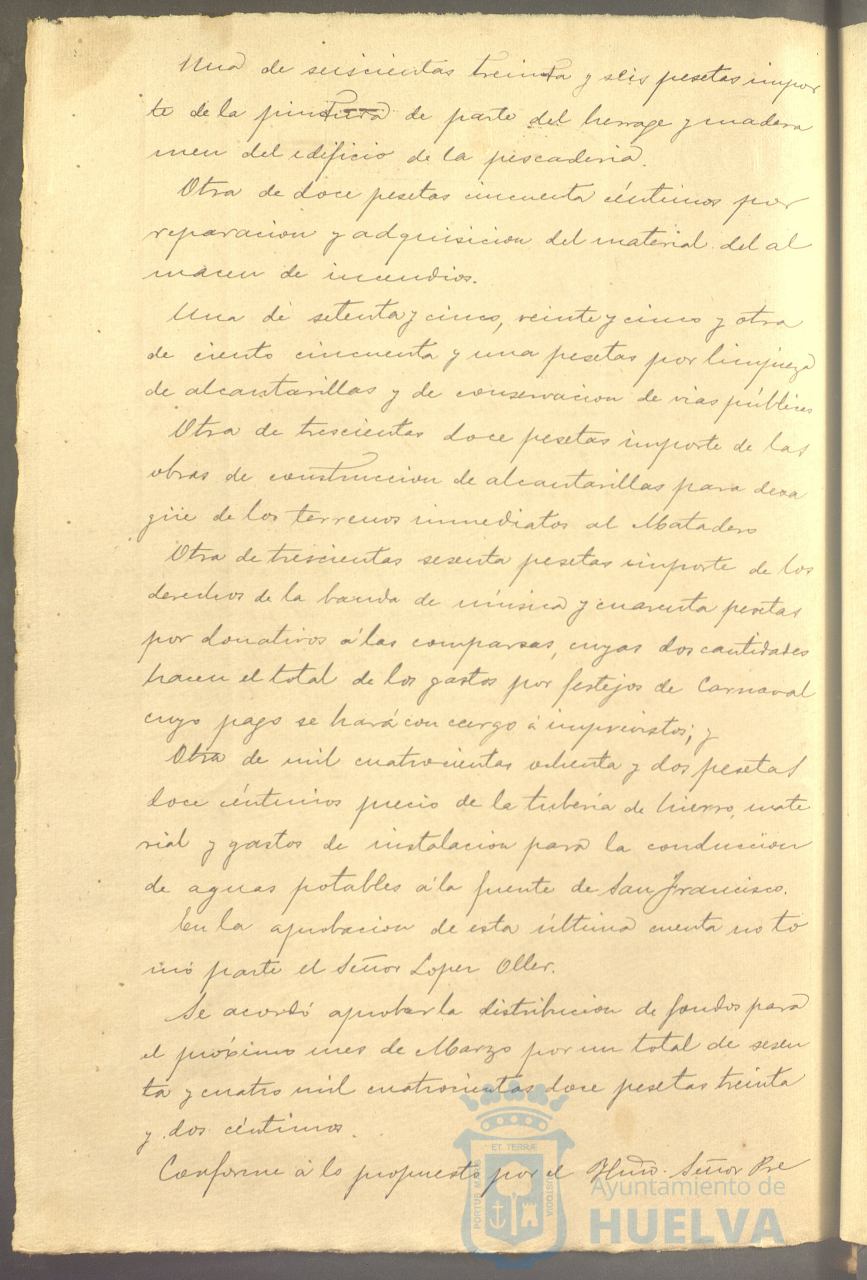 Una de seiscientas treinta y seis pesetas impor
te de la pintura de parte del herrage y madera
men del edificio de la pescaderia.
Otra de doce pesetas cincuenta céntimos por
reparacion y adquisicion del material del al
macen de incendios.
Una de setenta y cinco, veinte y cinco y otra
de ciento cincuenta y una pesetas por limpieza
de alcantarillas y de conservacion de vias públicas
Otra de trescientas doce pesetas importe de las
obras de construccion de alcantarillas para desa
güe de los terrenos inmediatos al Matadero
Otra de trescientas sesenta pesetas importe de los
derechos de la banda de música y cuarenta pesetas
por donativos á las comparsas, cuyas dos cantidades
hacen el total de los gastos por festejos de Carnaval
cuyo pago se hará con cargo á imprevistos; y
Otra de mil cuatrocientas ochenta y dos pesetas
doce céntimos precio de la tuberia de hierro, mate
rial y gastos de instalacion para la conduccion
de aguas potables á la fuente de San Francisco.
En la aprobacion de esta última cuenta no to
mó parte el Señor Lopez Oller.
Se acordó aprobar la distribucion de fondos para
el próximo mes de Marzo por un total de sesen
ta y cuatro mil cuatrocientas doce pesetas treinta
y dos céntimos.
Conforme á lo propuesto por el Señor Pre
PORTUS MARIS ET TERRÆ CUSTODIA
Ayuntamiento de
HUELVA